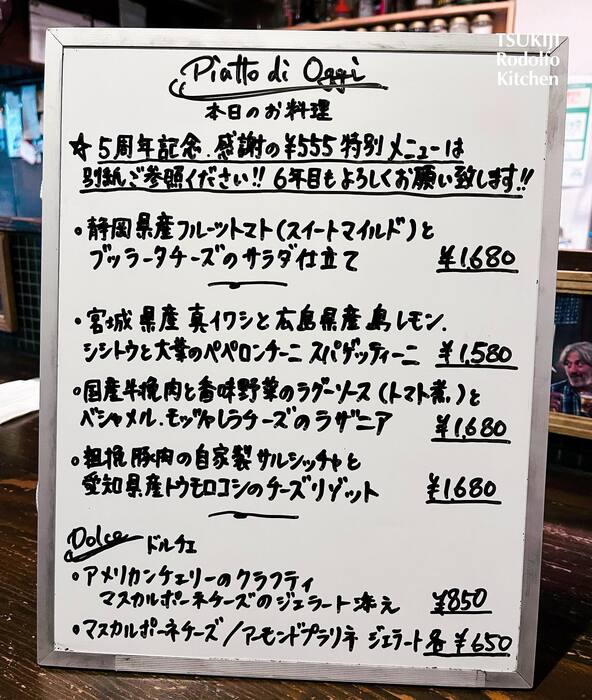 TSUKIJI
Rodolfo
Kitchen
Piatto di Oggi
本日のお料理
☆5周年記念.感謝の¥555特別メニューは
別紙ご参照ください!! 6年目もよろしくお願い致します!!
・静岡県産フルーツトマト(スイートマイルド)と
ブッラータチーズのサラダ仕立て ¥1,680
・宮城県産真イワシと広島県産島レモン.
シシトウと大葉のペペロンチーニ スパゲッティーニ ¥1,580
・国産牛挽肉と香味野菜のラグーソース(トマト煮.)と
ベシャメル.モッツァレラチーズのラザニア ¥1,680
・粗挽豚肉の自家製サルシッチャと
愛知県産トウモロコシのチーズリゾット ¥1,680
Dolce ドルチェ
・アメリカンチェリーのクラフティ
マスカルポーネチーズのジェラート添え ¥850
・マスカルポーネチーズ/アーモンドプラリネ ジェラート各¥650